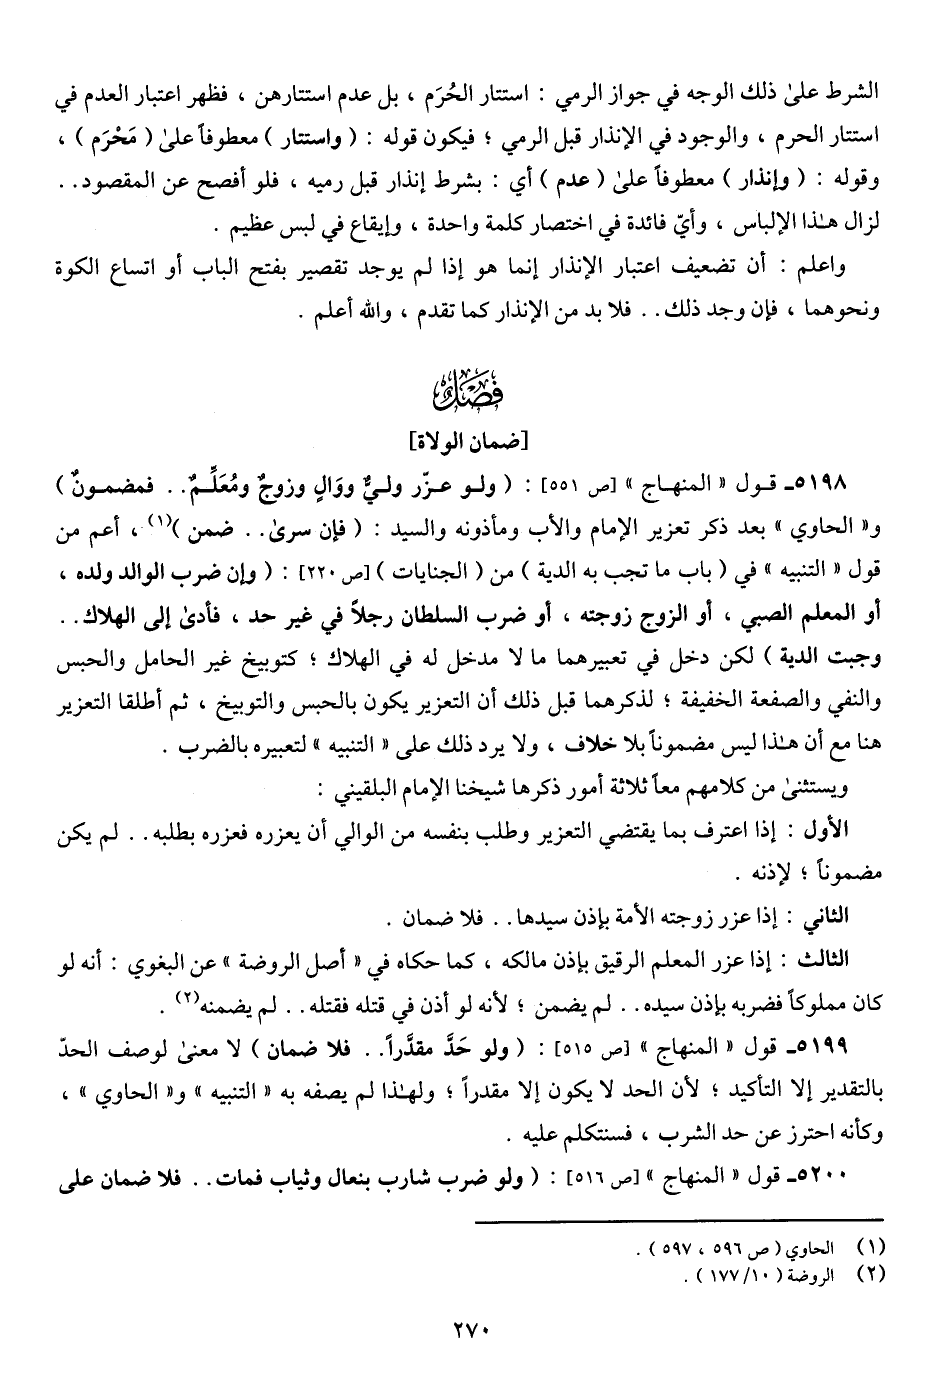 الشرط علىٰ ذلك الوجه في جواز الرمي : استتار الحُرَم ، بل عدم استتارهن ، فظهر اعتبار العدم في
استتار الحرم ، والوجود في الإنذار قبل الرمي ؛ فيكون قوله : ( واستتار ) معطوفاً علىٰ ( مَحْرَم ) ،
وقوله : ( وإنذار ) معطوفاً علىٰ ( عدم ) أي : بشرط إنذار قبل رميه ، فلو أفصح عن المقصود . .
لزال هـٰذا الإلباس ، وأيّ فائدة في اختصار كلمة واحدة ، وإيقاع في لبس عظيم .
واعلم : أن تضعيف اعتبار الإنذار إنما هو إذا لم يوجد تقصير بفتح الباب أو اتساع الكوة
ونحوهما ، فإن وجد ذلك . . فلا بد من الإنذار كما تقدم ، والله أعلم .
فصل
[ضمان الولاة]
٥١٩٨ـ قول « المنهاج » [ص ٥٥١] : ( ولو عزّر وليٌّ ووَالٍ وزوجٌ ومُعَلِّمٌ . . فمضمونٌ )
و« الحاوي » بعد ذكر تعزير الإمام والأب ومأذونه والسيد : ( فإن سرىٰ . . ضمن )(١) ، أعم من
قول « التنبيه » في ( باب ما تجب به الدية ) من ( الجنايات ) [ص ٢٢٠] : ( وإن ضرب الوالد ولده ،
أو المعلم الصبي ، أو الزوج زوجته ، أو ضرب السلطان رجلاً في غير حد ، فأدىٰ إلى الهلاك . .
وجبت الدية ) لكن دخل في تعبيرهما ما لا مدخل له في الهلاك ؛ كتوبيخ غير الحامل والحبس
والنفي والصفعة الخفيفة ؛ لذكرهما قبل ذلك أن التعزير يكون بالحبس والتوبيخ ، ثم أطلقا التعزير
هنا مع أن هـٰذا ليس مضموناً بلا خلاف ، ولا يرد ذلك على « التنبيه » لتعبيره بالضرب .
ويستثنىٰ من كلامهم معاً ثلاثة أمور ذكرها شيخنا الإمام البلقيني :
الأول : إذا اعترف بما يقتضي التعزير وطلب بنفسه من الوالي أن يعزره فعزره بطلبه . . لم يكن
مضموناً ؛ لإذنه .
الثاني : إذا عزر زوجته الأمة بإذن سيدها . . فلا ضمان .
الثالث : إذا عزر المعلم الرقيق بإذن مالكه ، كما حكاه في « أصل الروضة » عن البغوي : أنه لو
كان مملوكاً فضربه بإذن سيده . . لم يضمن ؛ لأنه لو أذن في قتله فقتله . . لم يضمنه(٢) .
٥١٩٩ـ قول « المنهاج » [ص ٥١٥] : ( ولو حَدَّ مقدَّراً . . فلا ضمان ) لا معنىٰ لوصف الحدّ
بالتقدير إلا التأكيد ؛ لأن الحد لا يكون إلا مقدراً ؛ ولهـٰذا لم يصفه به « التنبيه » و« الحاوي » ،
وكأنه احترز عن حد الشرب ، فسنتكلم عليه .
٥٢٠٠ـ قول « المنهاج » [ص ٥١٦] : ( ولو ضرب شارب بنعال وثياب فمات . . فلا ضمان على
(١) الحاوي ( ص ٥٩٦ ، ٥٩٧ ) .
(٢) الروضة ( ١٠/ ١٧٧ ) .
٢٧٠